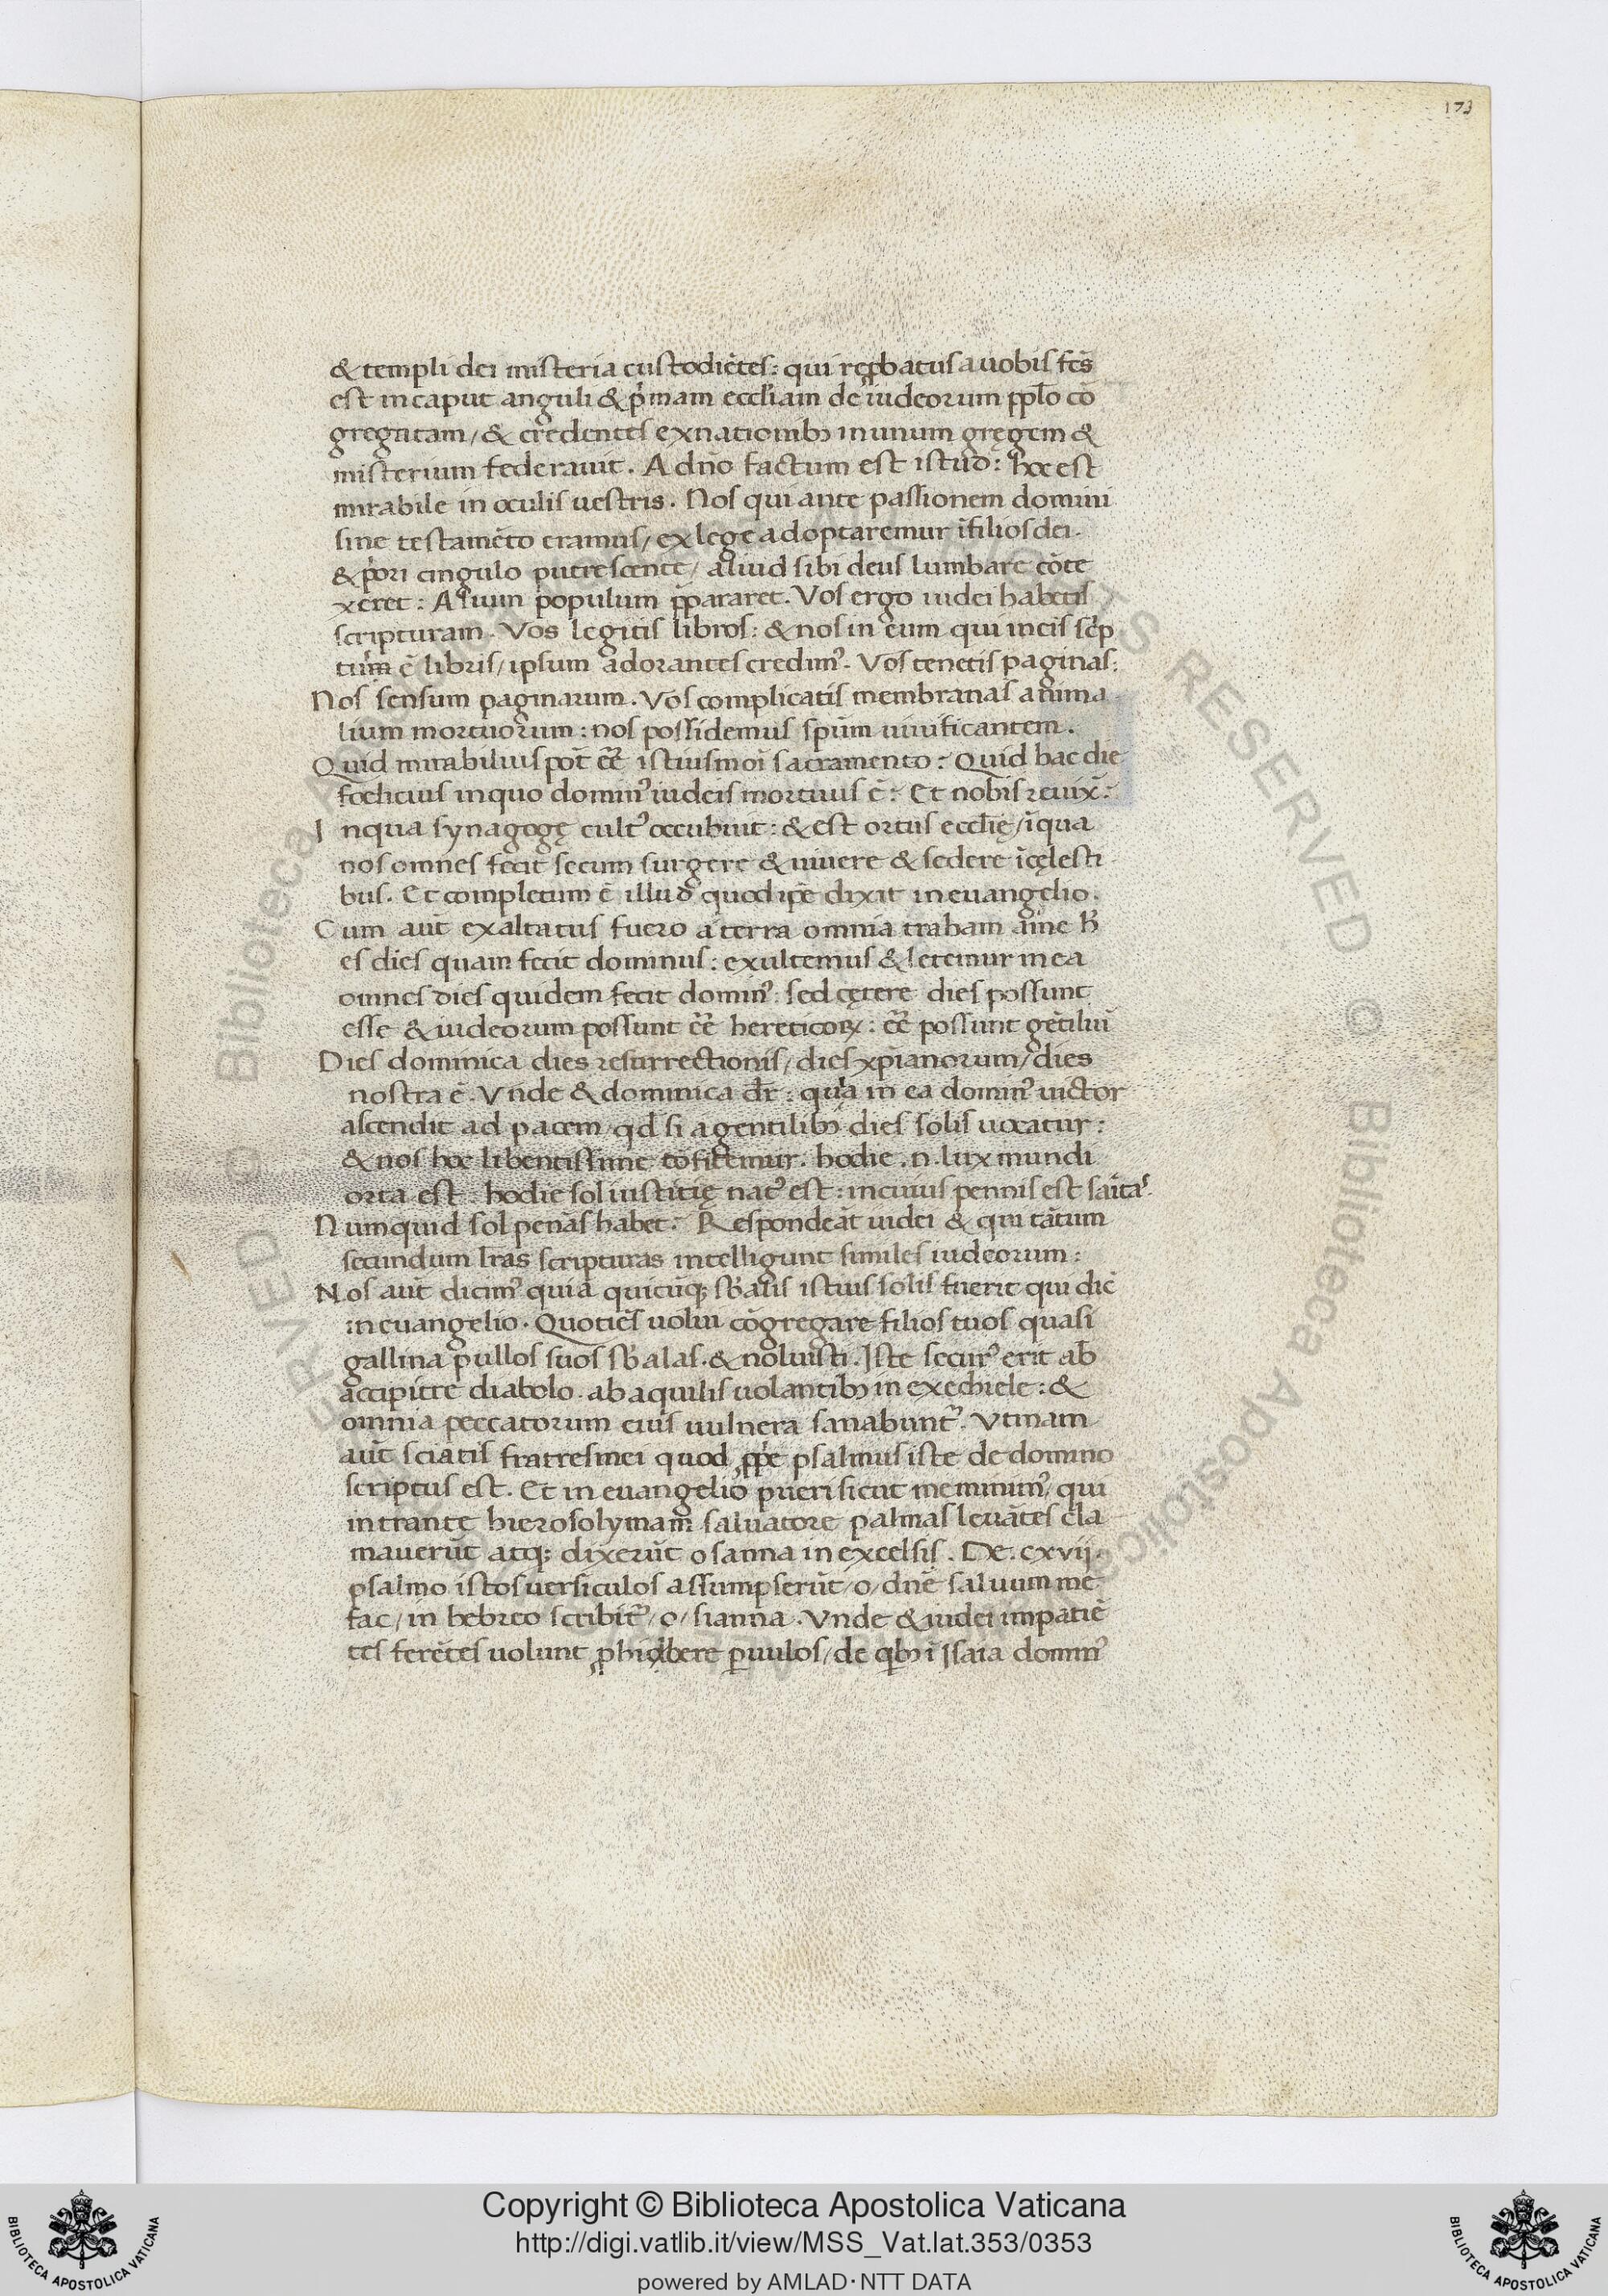 173
& templi dei misteria custodiẽtes: qui rep̱batus a uobis fc̃s
est in caput anguli & p̃mam eccl̃iam de iudeorum pp̃lo cõ
gregatam / & credentes ex nationib; in unum gręgem &
misterium federauit. A dño factum est istud: hoc est
mirabile in oculis uestris. Nos qui ante passionem domini
sine testamẽto eramus / ex lege adoptaremur ĩ filios dei.
& p̃ori cingulo putrescente / aliud sibi deus lumbare cõte
xeret: Alium populum p̃pararet. Vos ergo iudei habetis
scripturam. Vos legitis libros: & nos in eum qui in eis sc̃p
tum ẽ libris / ipsum adorantes credim⁹. Vos tenetis paginas:
Nos sensum paginarum. Vos complicatis membranas anima
lium mortuorum: nos possidemus sp̃um uiuificantem.
Quid mirabilius pot̃ eẽ istiusmõi sacramento: Quid hac die
foelicius in quo domin⁹ iudeis mortuus ẽ: Et nobis reuix̃:
Inqua synagogę cult⁹ occubuit: & est ortus eccl̃ię / ĩ qua
nos omnes fecit secum surgere & uiuere & sedere ĩ cęlesti
bus. Et completum ẽ illud quod ip̃e dixit in euangelio.
Cum aut̃ exaltatus fuero a terra omnia traham a me h̃
es dies quam fecit dominus: exultemus & letemur in ea
omnes dies quidem fecit domin⁹: sed cętere dies possunt
esse & iudeorum possunt eẽ hereticoꝝ: eẽ possunt gẽtiliũ
Dies dominica dies resurrectionis / dies xp̃ianorum / dies
nostra ẽ. Vnde & dominica dr̃: quia in ea domin⁹ uictor
ascendit ad pacem / qd̃ si a gentilib; dies solis uocatur:
& nos hoc libentissime cõfitemur. hodie .n. lux mundi
orta est: hodie sol iustitię nat⁹ est: in cuius pennis est sañitas.
Numquid sol penãs habet: Respondeãt iudei & qui tãtum
secundum lr̃as scripturas intelligunt similes iudeorum:
Nos aut̃ dicim⁹ quia quicũq; sb̃ alis istius solis fuerit qui dic̃
in euangelio. Quotiẽs uolui cõgregare filios tuos quasi
gallina pullos suos sb̃ alas. & noluisti. Iste secur⁹ erit ab
accipitre diabolo. ab aquilis uolantib; in exechiele: &
omnia peccatorum eius uulnera sanabunt᷑. Vtinam
aut̃ sciatis fratres mei quod p̱p̃e psalmus iste de domino
scriptus est. Et in euangelio pueri sicut meminim⁹ / qui
intrantę hierosolymam saluatore palmas leuãtes cla
mauerũt atq; dixerũt osanna in excelsis. De. cxvij.
psalmo istos uersiculos assumpserũt / o / dñe saluum me
fac / in hebreo scribit᷑ / o / sianna. Vnde & iudei impatiẽ
tes ferẽtes uolunt p̱hibere p̱uulos / de qb; ĩ Isaia domin⁹
Copyright © Biblioteca Apostolica Vaticana
http://digi.vatlib.it/view/MSS_Vat.lat.353/0353
powered by AMLAD·NTT DATA
BIBLIOTECA APOSTOLICA VATICANA
BIBLIOTECA APOSTOLICA VATICANA